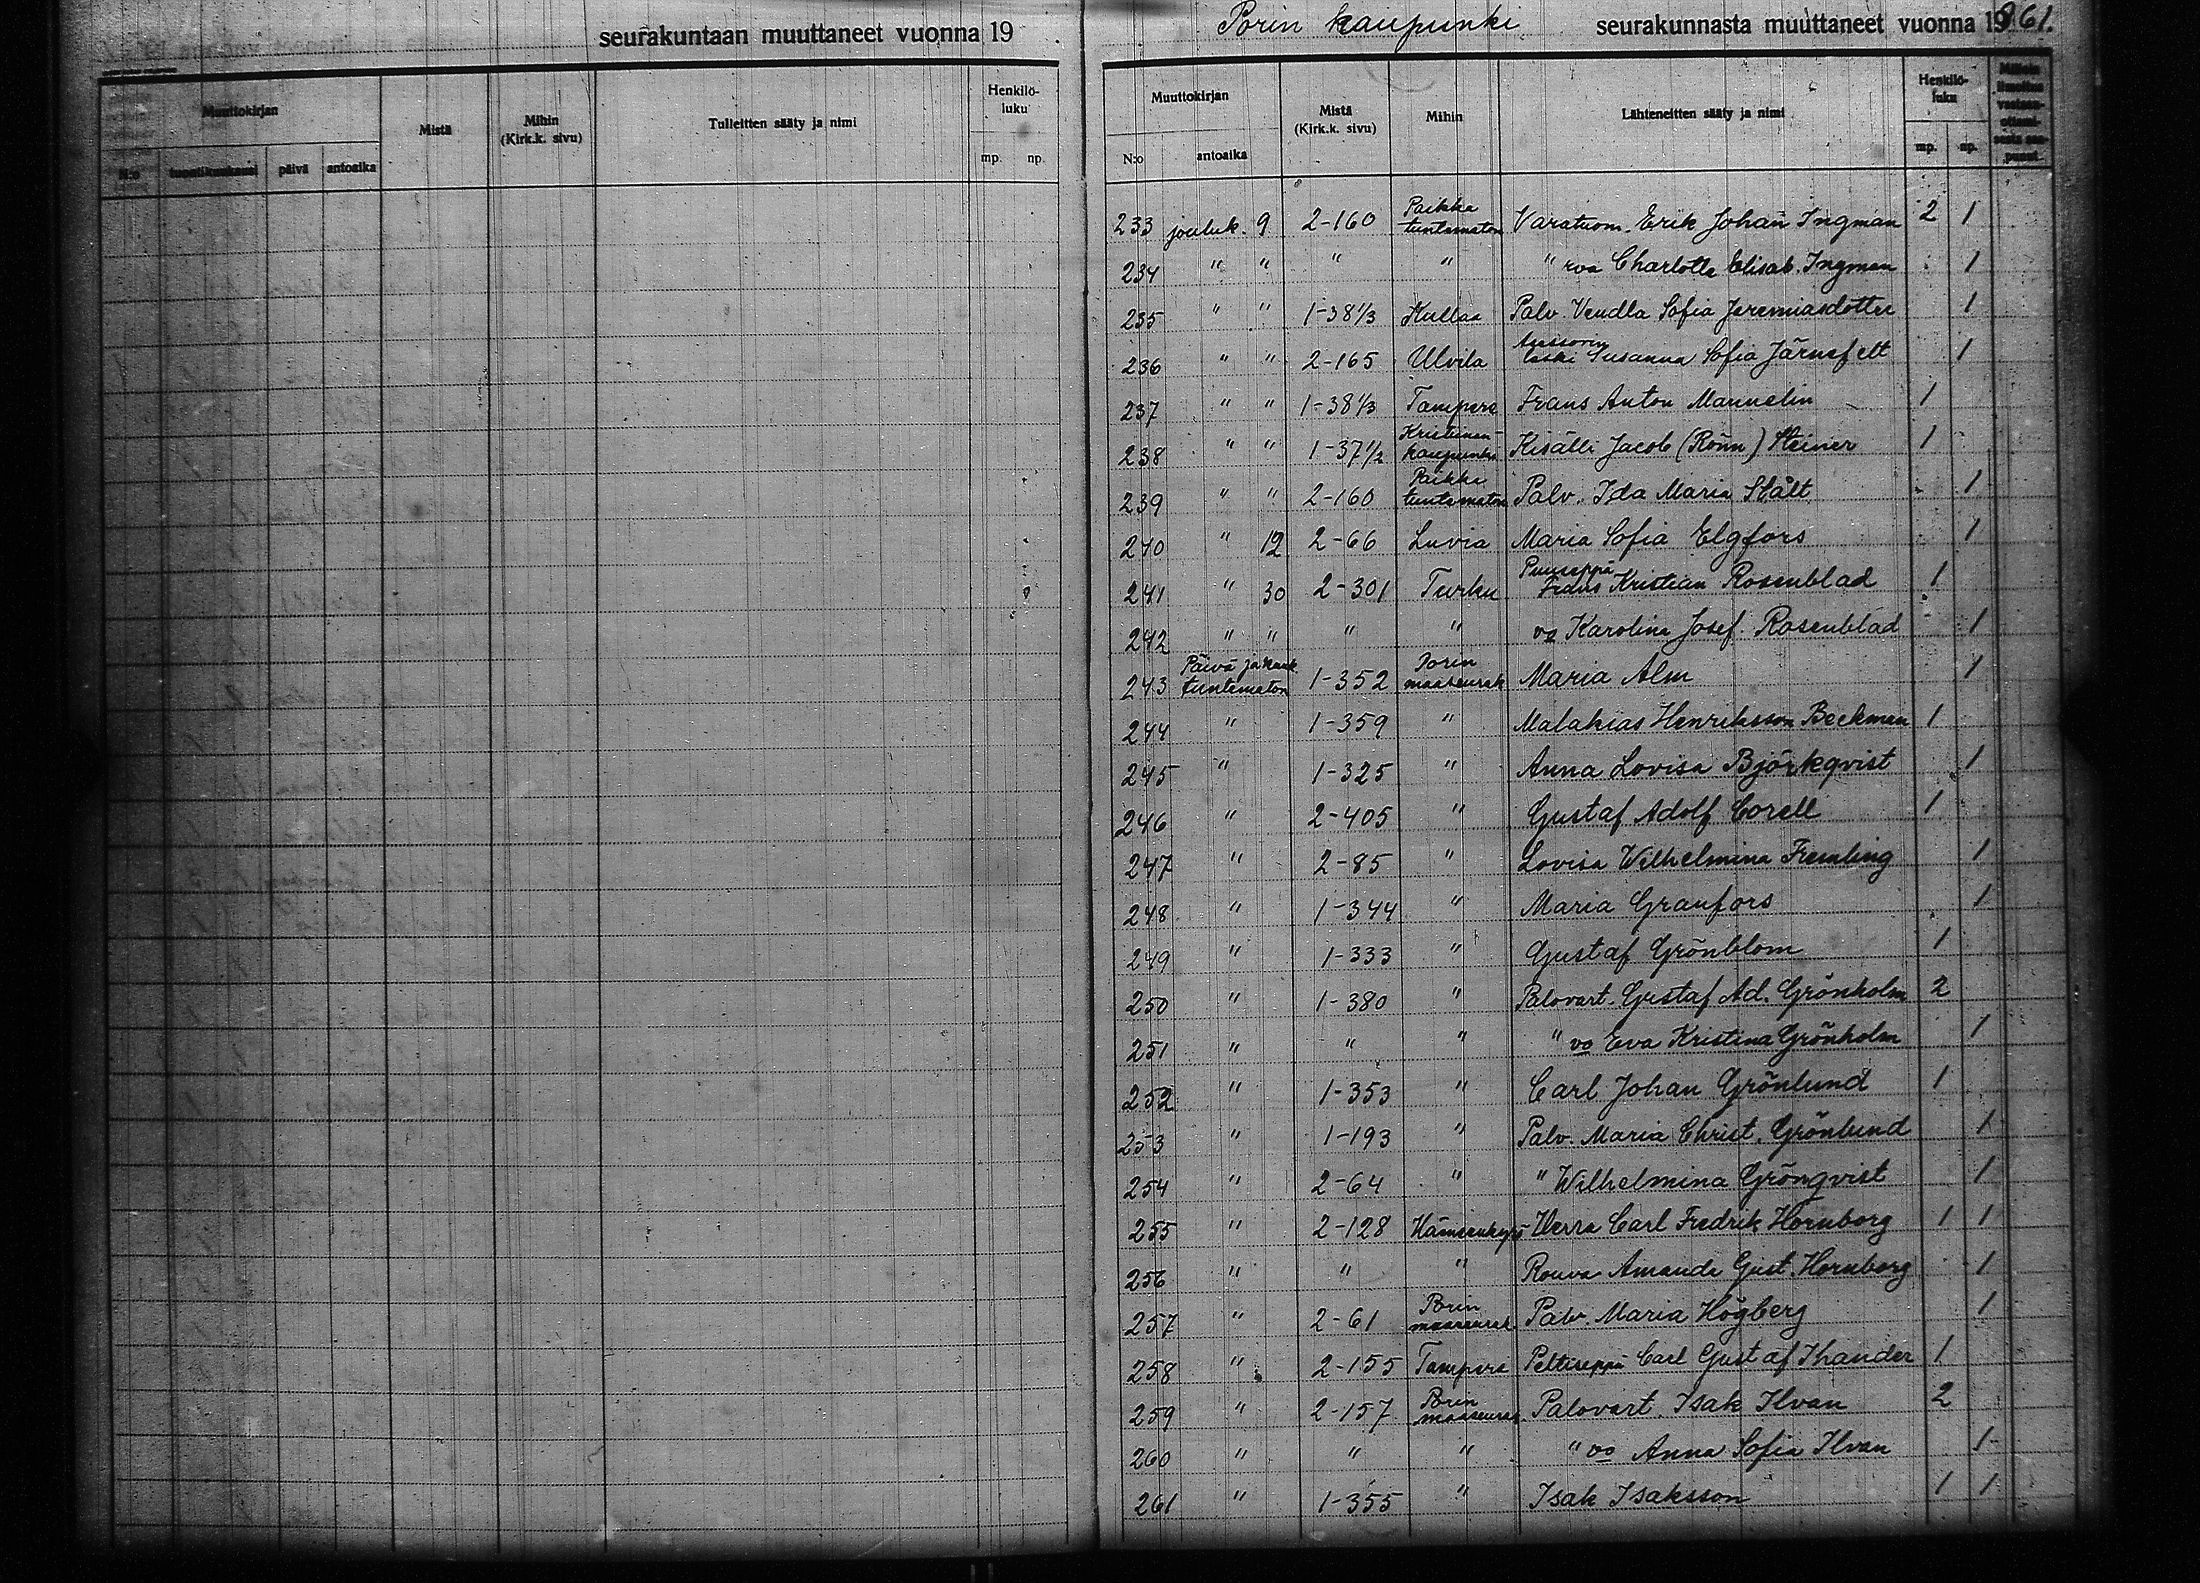 seurakuntaan muuttaneet vuonna 19
Muuttokirjan Mistä Mihin (Kirk.k. sivu) Tulleitten sääty ja nimi Henkilö-luku
N:o päivä antoaika mp. np.
Porin kaupunki seurakunnasta muuttaneet vuonna 1861.
Muuttokirjan Mistä (Kirk.k. sivu) Mihin Lähteneitten sääty ja nimi Henkilö-luku
N:o antoaika mp. np.
233 jouluk. 9 2-160 Paikka tuntematon Varatuom. Erik Johan Ingman 2 1
234 " " " " " rva Charlotta Elisab. Ingman 1
235 " " 1-38 1/3 Kullaa Palv. Vendla Sofia Jeremiasdotter 1
236 " " 2-165 Ulvila Assessorin leski Susanna Sofia Järnefelt 1
237 " " 1-38 1/3 Tampere Frans Anton Mannelin 1
238 " " 1-37 1/2 Kristiinankaupunki Kisälli Jacob (Rönn) Steiner 1
239 " " 2-160 Paikka tuntematon Palv. Ida Maria Stålt 1
240 " 12 2-66 Luvia Maria Sofia Elgfors 1
241 " 30 2-301 Turku Puuseppä Frans Kristian Rosenblad 1
242 " " " " vo Karolina Josef. Rosenblad 1
243 Päivä ja kuuk. tuntematon 1-352 Porin maaseurak Maria Alm 1
244 " 1-359 " Malakias Henriksson Beckman 1
245 " 1-325 " Anna Lovisa Björkqvist 1
246 " 2-405 " Gustaf Adolf Corell 1
247 " 2-85 " Lovisa Wilhelmina Fremling 1
248 " 1-344 " Maria Granfors 1
249 " 1-333 " Gustaf Grönblom 1
250 " 1-380 " Palovart. Gustaf Ad. Grönholm 2
251 " " " " vo Eva Kristina Grönholm 1
252 " 1-353 " Carl Johan Grönlund 1
253 " 1-193 " Palv. Maria Christ. Grönlund 1
254 " 2-64 " " Wilhelmina Grönqvist 1
255 " 2-128 Hämeenkyrö Herra Carl Fredrik Hornborg 1 1
256 " " " Rouva Amanda Gust. Hornborg 1
257 " 2-61 Porin maaseurak. Palv. Maria Högberg 1
258 " 2-155 Tampere Peltiseppä Carl Gustaf Ihander 1
259 " 2-157 Porin maaseurak. Palovart. Isak Ilvan 2
260 " " " " vo Anna Sofia Ilvan 1
261 " 1-355 " Isak Isaksson 1 1